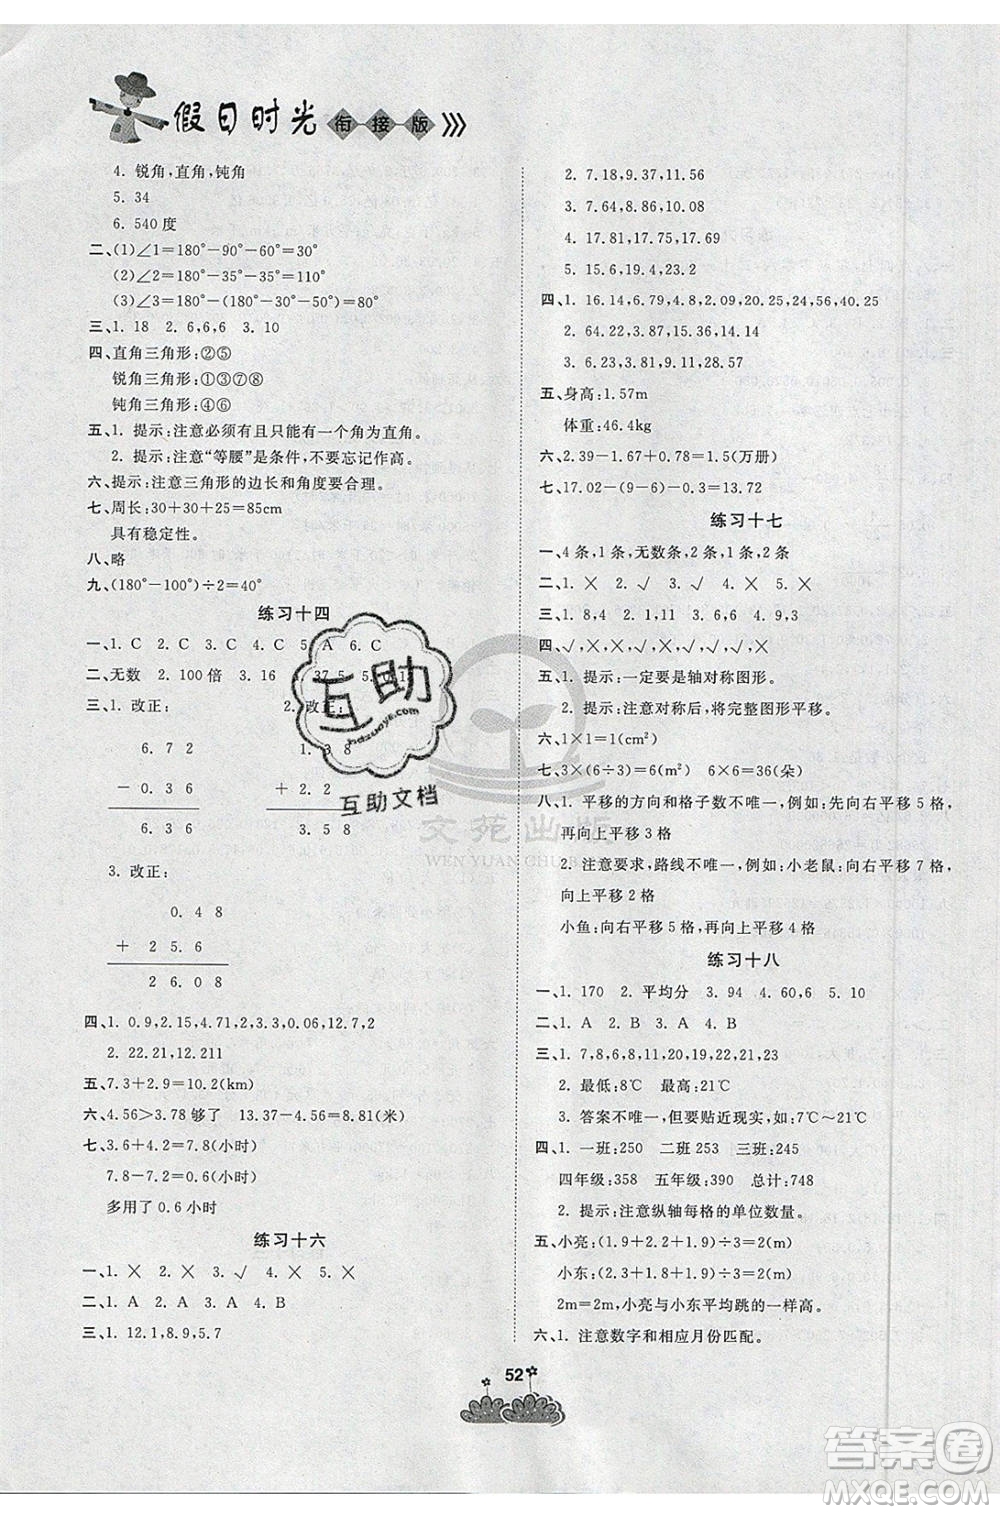 假日时光 衔接版
4. 锐角,直角,钝角
5. 34
6. 540 度
二、(1)∠1=180°-90°-60°=30°
(2)∠2=180°-15°-55°=110°
(3)∠2=180°-(180°-90°-30°)=120°
三、1. 18 2. 6,6,6 3. 10
四、直角三角形:②⑤
锐角三角形:①③⑦⑧
钝角三角形:④⑥
五、1. 提示:注意必须有且只能有一个角为直角。
2. 提示:注意“等腰”是条件,不要忘记作高。
六、提示:注意三角形的边长和角度要合理。
七、周长:30+30+25=85cm
具有稳定性。
八、略
九、(180°-100°)÷2=40°
练习十四
一、1. C 2. C 3. C 4. C 5. A 6. C
二、无数 2. 100 倍 3. 16 4. 37.5 5. 0.1
三、1. 改正: 2. 改正:
6. 7 2 1. 3 8
- 0. 3 6 + 2. 2
6. 3 6 3. 5 8
3. 改正:
0. 4 8
+ 2 5. 6
2 6. 0 8
四、1. 0.9,2.15,4.71,2,3.3,0.06,12.7,2
2. 22.21,12.211
五、7.3+2.9=10.2(km)
六、4.56>3.78 够了 13.37-4.56=8.81(米)
七、3.6+4.2=7.8(小时)
7.8-7.2=0.6(小时)
多用了 0.6 小时
练习十六
一、1. × 2. × 3. √ 4. × 5. ×
二、1. A 2. C 3. B 4. B 5. C
三、1. 12.1,8.9,5.7
2. 7.18,9.37,11.56
3. 7.64,8.86,10.08
4. 17.81,17.75,17.69
5. 15.6,19.4,23.2
四、1. 16.14,6.79,4.8,2.09,20,24,56,40.25
2. 64.22,3.87,14.35,14.14
3. 6.23,3.81,9.11,28.57
五、身高:1.57m
体重:46.4kg
六、2.39-1.67+0.78=1.5(万册)
七、17.02-(9-6)-0.3=13.72
练习十七
一、4 条,1 条,无数条,2 条,1 条,2 条
二、1. × 2. √ 3. √ 4. × 5. ×
三、1. 8,4 2. 1,11 3. 8,8 4. 6 4. 9,3
四、√,×,×,√,√,×,×,×
五、1. 提示:一定要是轴对称图形。
2. 提示:注意对称后,将完整图形平移。
六、1×1=1(cm²)
七、3×(6÷3)=6(m²) 6×6=36(朵)
八、1. 平移的方向和格子数不唯一,例如:向右平移 5 格,
再向上平移 3 格
2. 注意要求,路线不唯一,例如:小老鼠:向右平移 7 格,
向上平移 2 格
小鱼:向右平移 5 格,再向上平移 4 格
练习十八
一、1. 170 2. 平均分 3. 94 4. 60,6 5. 10
二、1. A 2. B 3. A 4. B
三、1. 7,8,6,8,9,11,18,19,20,21,22,21,23
2. 最低:8℃ 最高:21℃
3. 答案不唯一,但要贴近现实,如:7℃～21℃
四、1. 一班:250 二班 253 三班:245
四年级:358 五年级:390 总计:748
2. 提示:注意纵轴每格的单位数量。
五、小亮:(1.9+2.2+1.9)÷3=2(m)
小东:(2.3+1.9+1.8)÷3=2(m)
2m=2m,小亮与小东平均跳的一样高。
六、1. 注意数字和相应月份匹配。
52
互助
hdzuoye.com
互助文档
文苑出版
答案圈
MXQE.COM